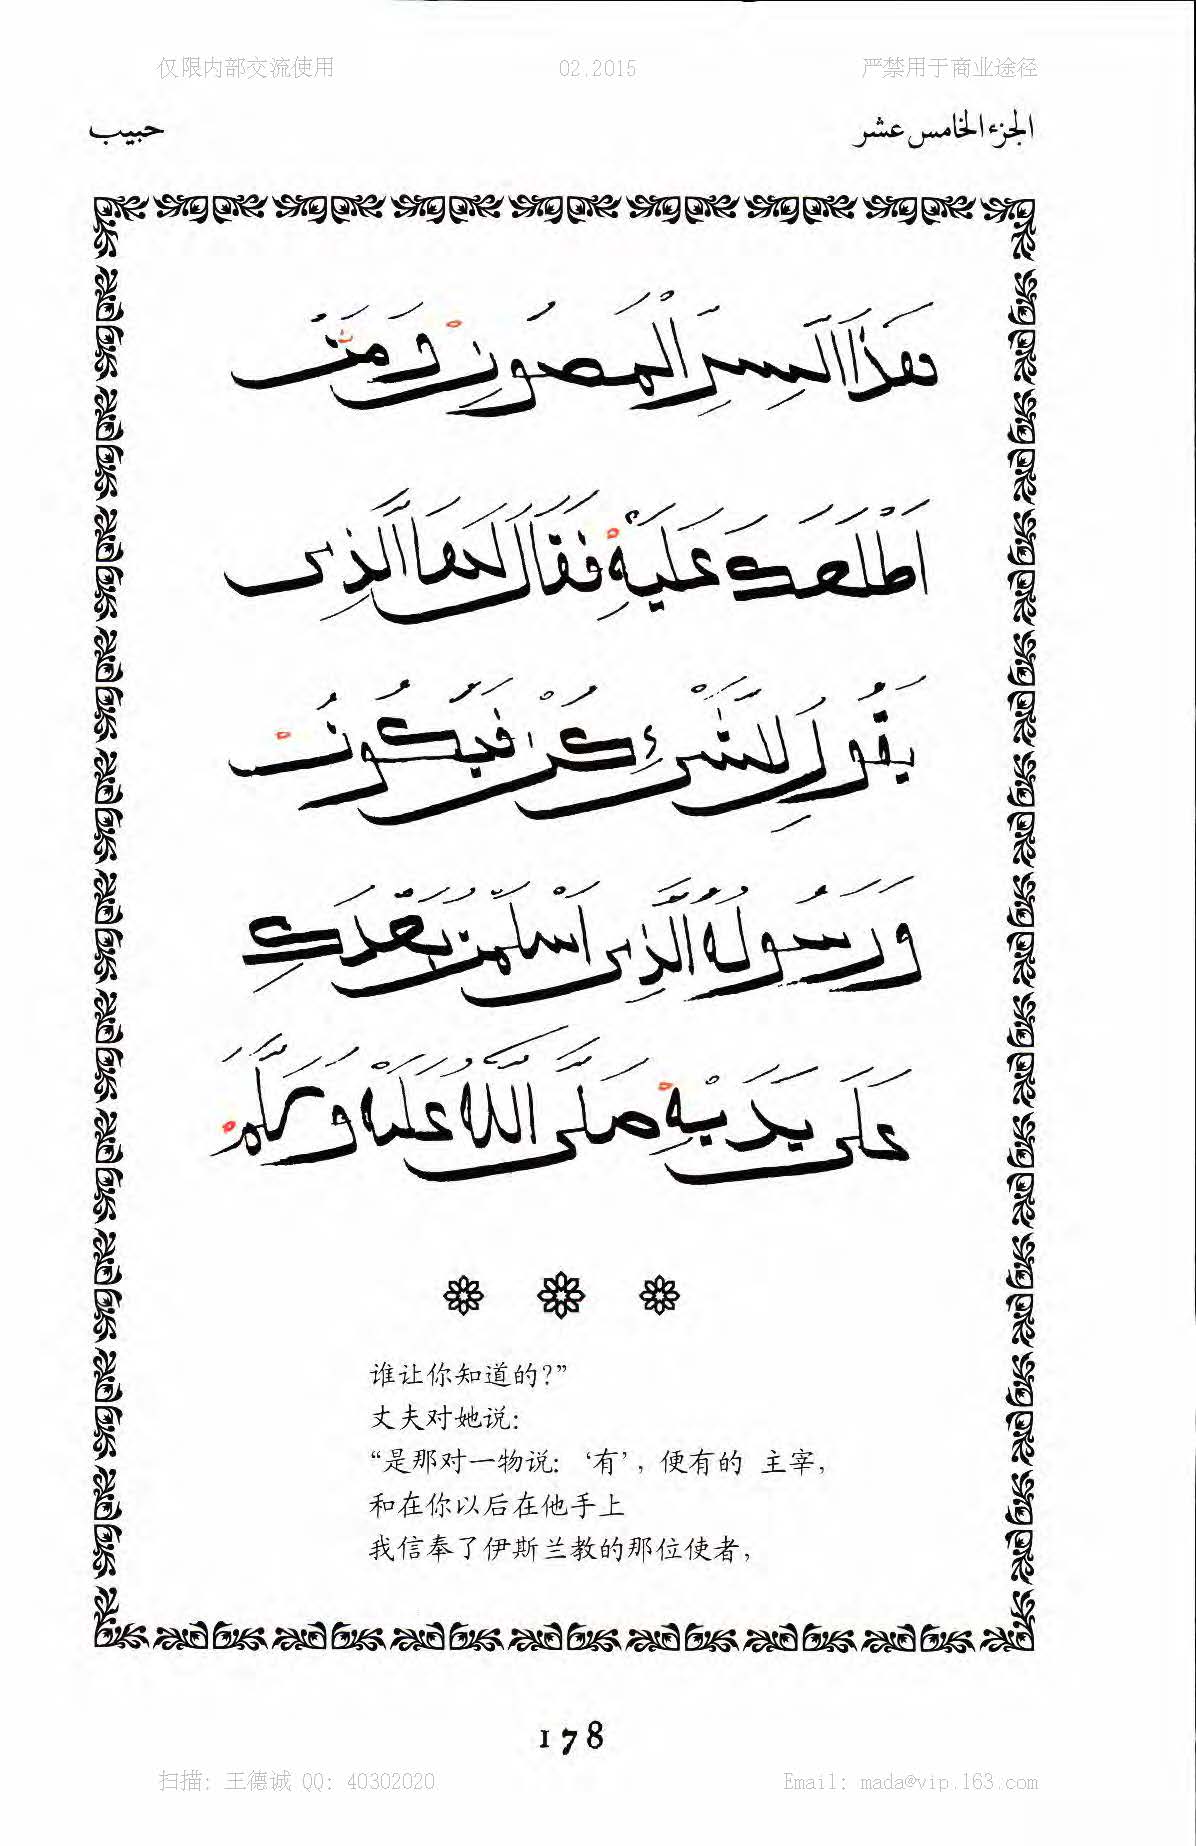 仅限内部交流使用 02.2015 严禁用于商业途径
حبيب الجزء الخامس عشر
هَذَا السِّرِّ الْمَصُونِ وَمَنْ
اَطْلَعَكَ عَلَيْهِ فَقَالَ لَهَا الَّذِى
يَقُولُ لِلشَّىْءِ كُنْ فَيَكُونُ
وَرَسُولُهُ الَّذِى اَسْلَمْتُ بَعْدَكِ
عَلَى يَدَيْهِ صَلَّى اللَّهُ عَلَيْهِ وَسَلَّمَ
谁让你知道的?”
丈夫对她说:
“是那对一物说: ‘有’, 便有的 主宰,
和在你以后在他手上
我信奉了伊斯兰教的那位使者,
178
扫描: 王德诚 QQ: 40302020 Email: mada@vip.163.com